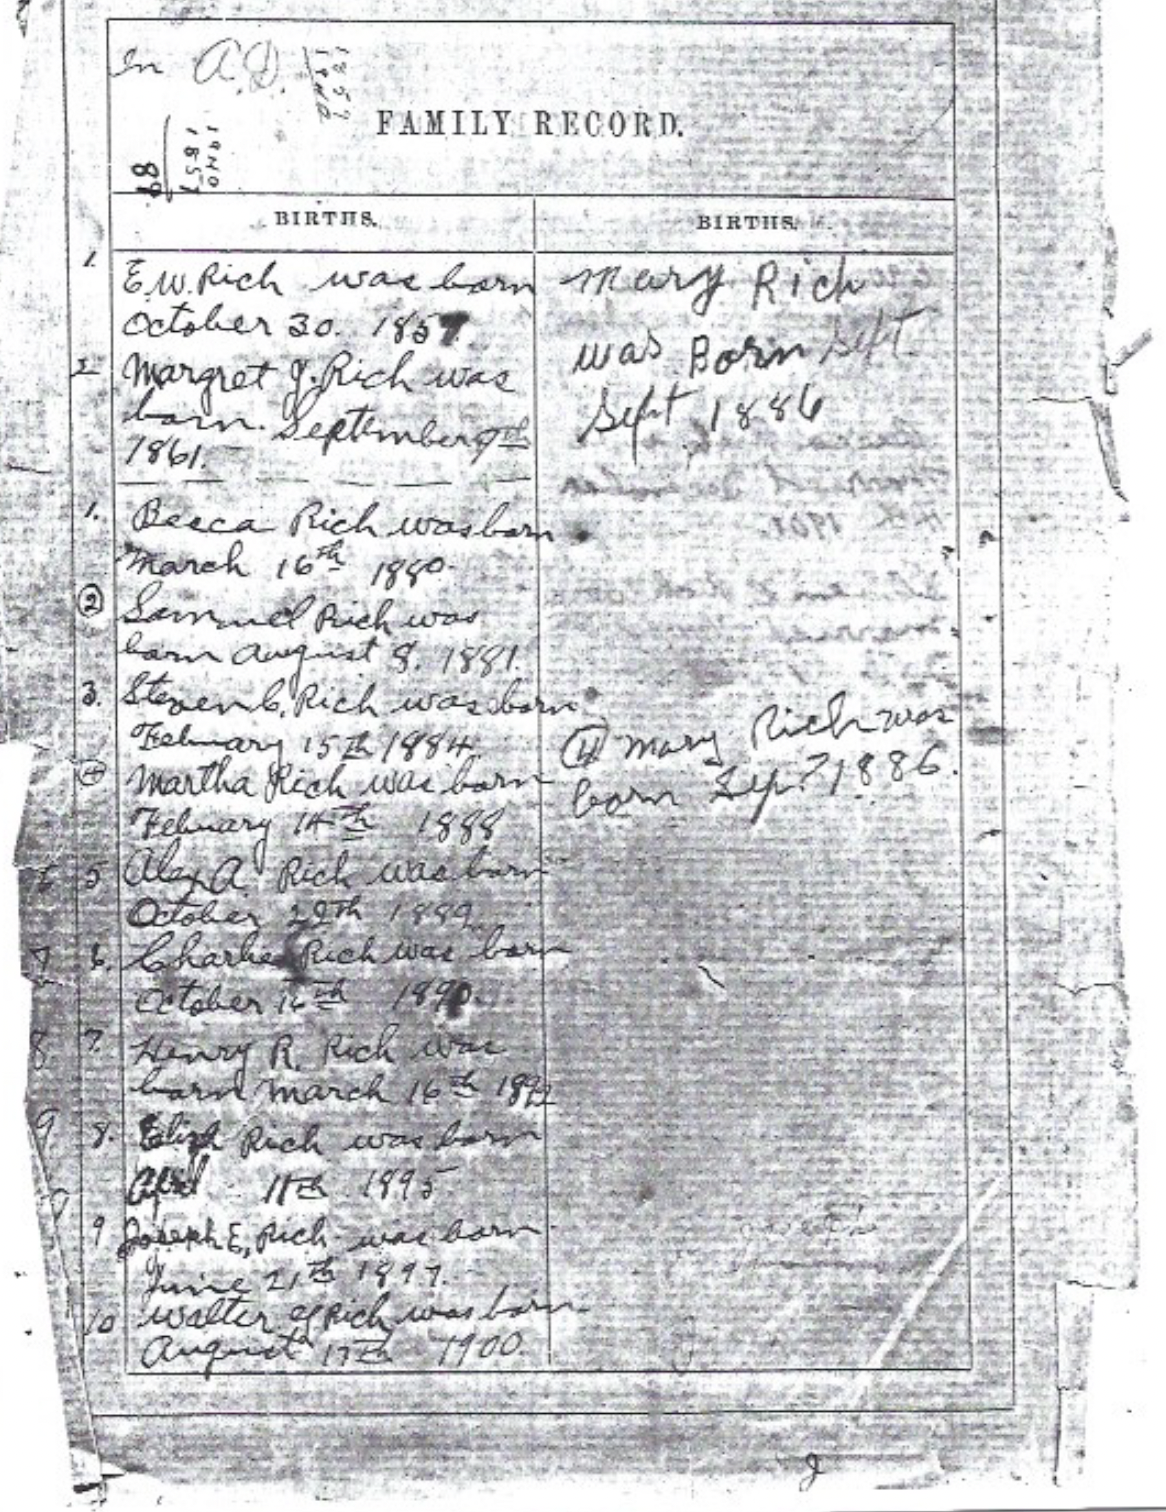 In A.D.
1857
1940
1940
1857
FAMILY RECORD.
BIRTHS.
1. E.W. Rich was born
October 30. 1857
2 Margret J. Rich was
born. September 9th
1861.
1. Becca Rich was born
March 16th 1880.
2 Samuel Rich was
born August 8. 1881.
3. Steven C. Rich was born
Febuary 15th 1884.
4 Martha Rich was born
Febuary 14th 1888
6 5 Alex A. Rich was born
October 29th 1889
7 6. Charlie Rich was born
October 16th 1890.
8 7. Henry R. Rich was
born March 16th
9 8. Rich was born
April 11th 1895
9 Joseph E, Rich was born
June 21th 1897.
10 Walter Rich was born
August 17th 1900.
BIRTHS.
Mary Rich
was Born Sept.
Sept 1886
4 Mary Rich was
born Sep. ? 1886.